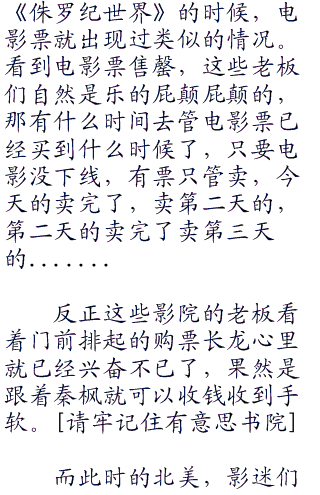 《侏罗纪世界》的时候，电
影票就出现过类似的情况。
看到电影票售罄，这些老板
们自然是乐的屁颠屁颠的，
那有什么时间去管电影票已
经买到什么时候了，只要电
影没下线，有票只管卖，今
天的卖完了，卖第二天的，
第二天的卖完了卖第三天
的.......
反正这些影院的老板看
着门前排起的购票长龙心里
就已经兴奋不已了，果然是
跟着秦枫就可以收钱收到手
软。[请牢记住有意思书院]
而此时的北美，影迷们